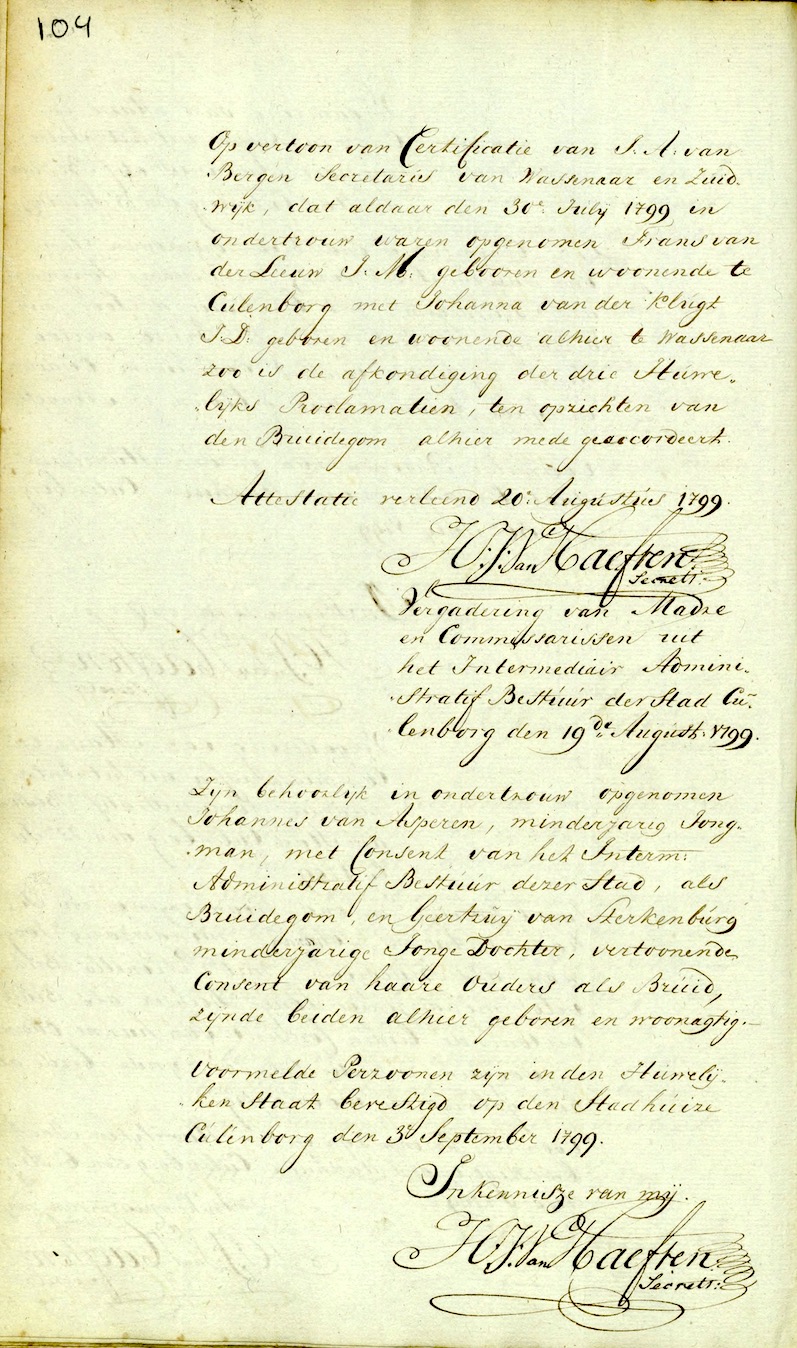 104
Op vertoon van Certificatie van J. A. van
Bergen Secretaris van Wassenaar en Zuid-
wijk, dat aldaar den 30e July 1799 in
ondertrouw waren opgenomen Frans van
der Leeuw J. M: gebooren en woonende te
Culenborg met Johanna van der Klugt
J. D: geboren en woonende alhier te Wassenaar
zoo is de afkondiging der drie Huwe„
„lyks Proclamatien, ten opzichten van
den Bruidegom alhier mede geaccordeert.
Attestatie verleend 20e Augustus 1799.
H: J: Van Haeften
Secrets:
Vergadering van Madre
en Commissarissen uit
het Intermediair Admini-
stratif Bestuur der Stad Cu-
lenborg den 19de August. 1799.
Zyn behoorlyk in ondertrouw opgenomen
Johannes van Asperen, minderjarig Jong-
man, met Consent van het Interm:
Administratif Bestuur dezer Stad, als
Bruidegom, en Geertruy van Sterkenburg
minderjarige Jonge Dochter, vertoonende
Consent van haare Ouders als Bruid,
zynde beiden alhier geboren en woonagtig.—
Voormelde Perzoonen zyn in den Huwely„
„ken Staat bevestigd op den Stadhuize
Culenborg den 3e September 1799.
In kennisze van my.
H: J: Van Haeften
Secrets: